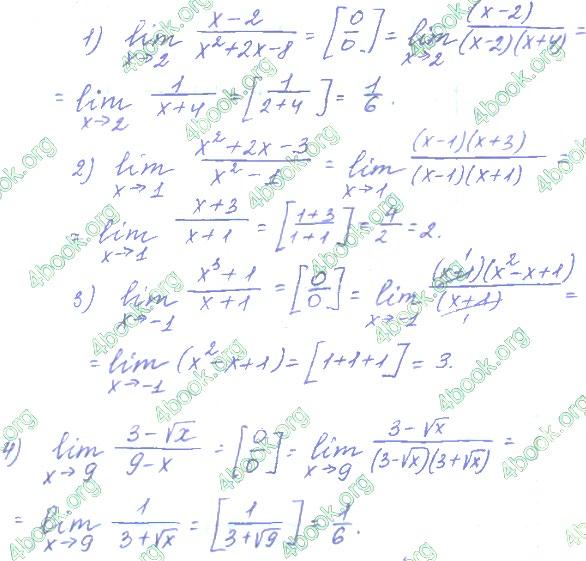 1) lim x→2 (x-2)/(x²+2x-8) = [0/0] = lim x→2 (x-2)/((x-2)(x+4)) =
= lim x→2 1/(x+4) = [1/(2+4)] = 1/6.
2) lim x→1 (x²+2x-3)/(x²-1) = lim x→1 ((x-1)(x+3))/((x-1)(x+1)) =
= lim x→1 (x+3)/(x+1) = [(1+3)/(1+1)] = 4/2 = 2.
3) lim x→-1 (x³+1)/(x+1) = [0/0] = lim x→-1 ((x+1)(x²-x+1))/(x+1) =
= lim x→-1 (x²-x+1) = [1+1+1] = 3.
4) lim x→9 (3-√x)/(9-x) = [0/0] = lim x→9 (3-√x)/((3-√x)(3+√x)) =
= lim x→9 1/(3+√x) = [1/(3+√9)] = 1/6.
4book.org